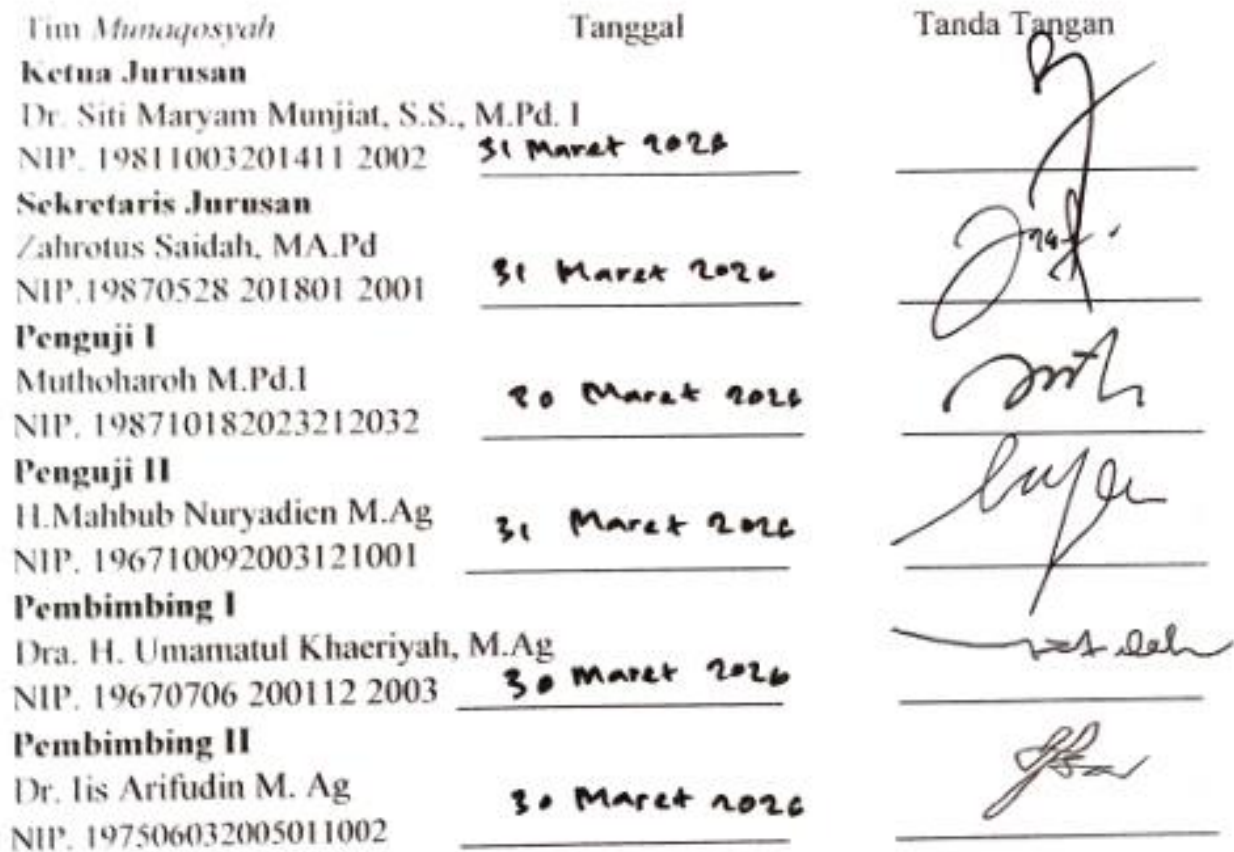 Tim Munaqosyah Tanggal Tanda Tangan
Ketua Jurusan
Dr. Siti Maryam Munjiat, S.S., M.Pd. I
NIP. 19811003201411 2002 31 Maret 2026
Sekretaris Jurusan
Zahrotus Saidah, MA.Pd
NIP.19870528 201801 2001 31 Maret 2026
Penguji I
Muthoharoh M.Pd.I
NIP. 198710182023212032 30 Maret 2026
Penguji II
H.Mahbub Nuryadien M.Ag
NIP. 196710092003121001 31 Maret 2026
Pembimbing I
Dra. H. Umamatul Khaeriyah, M.Ag
NIP. 19670706 200112 2003 30 Maret 2026
Pembimbing II
Dr. Iis Arifudin M. Ag
NIP. 197506032005011002 30 Maret 2026